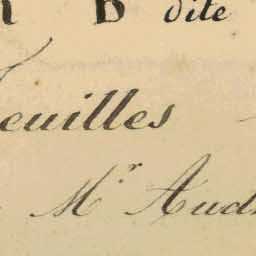 B dite
euilles
Mr Aud